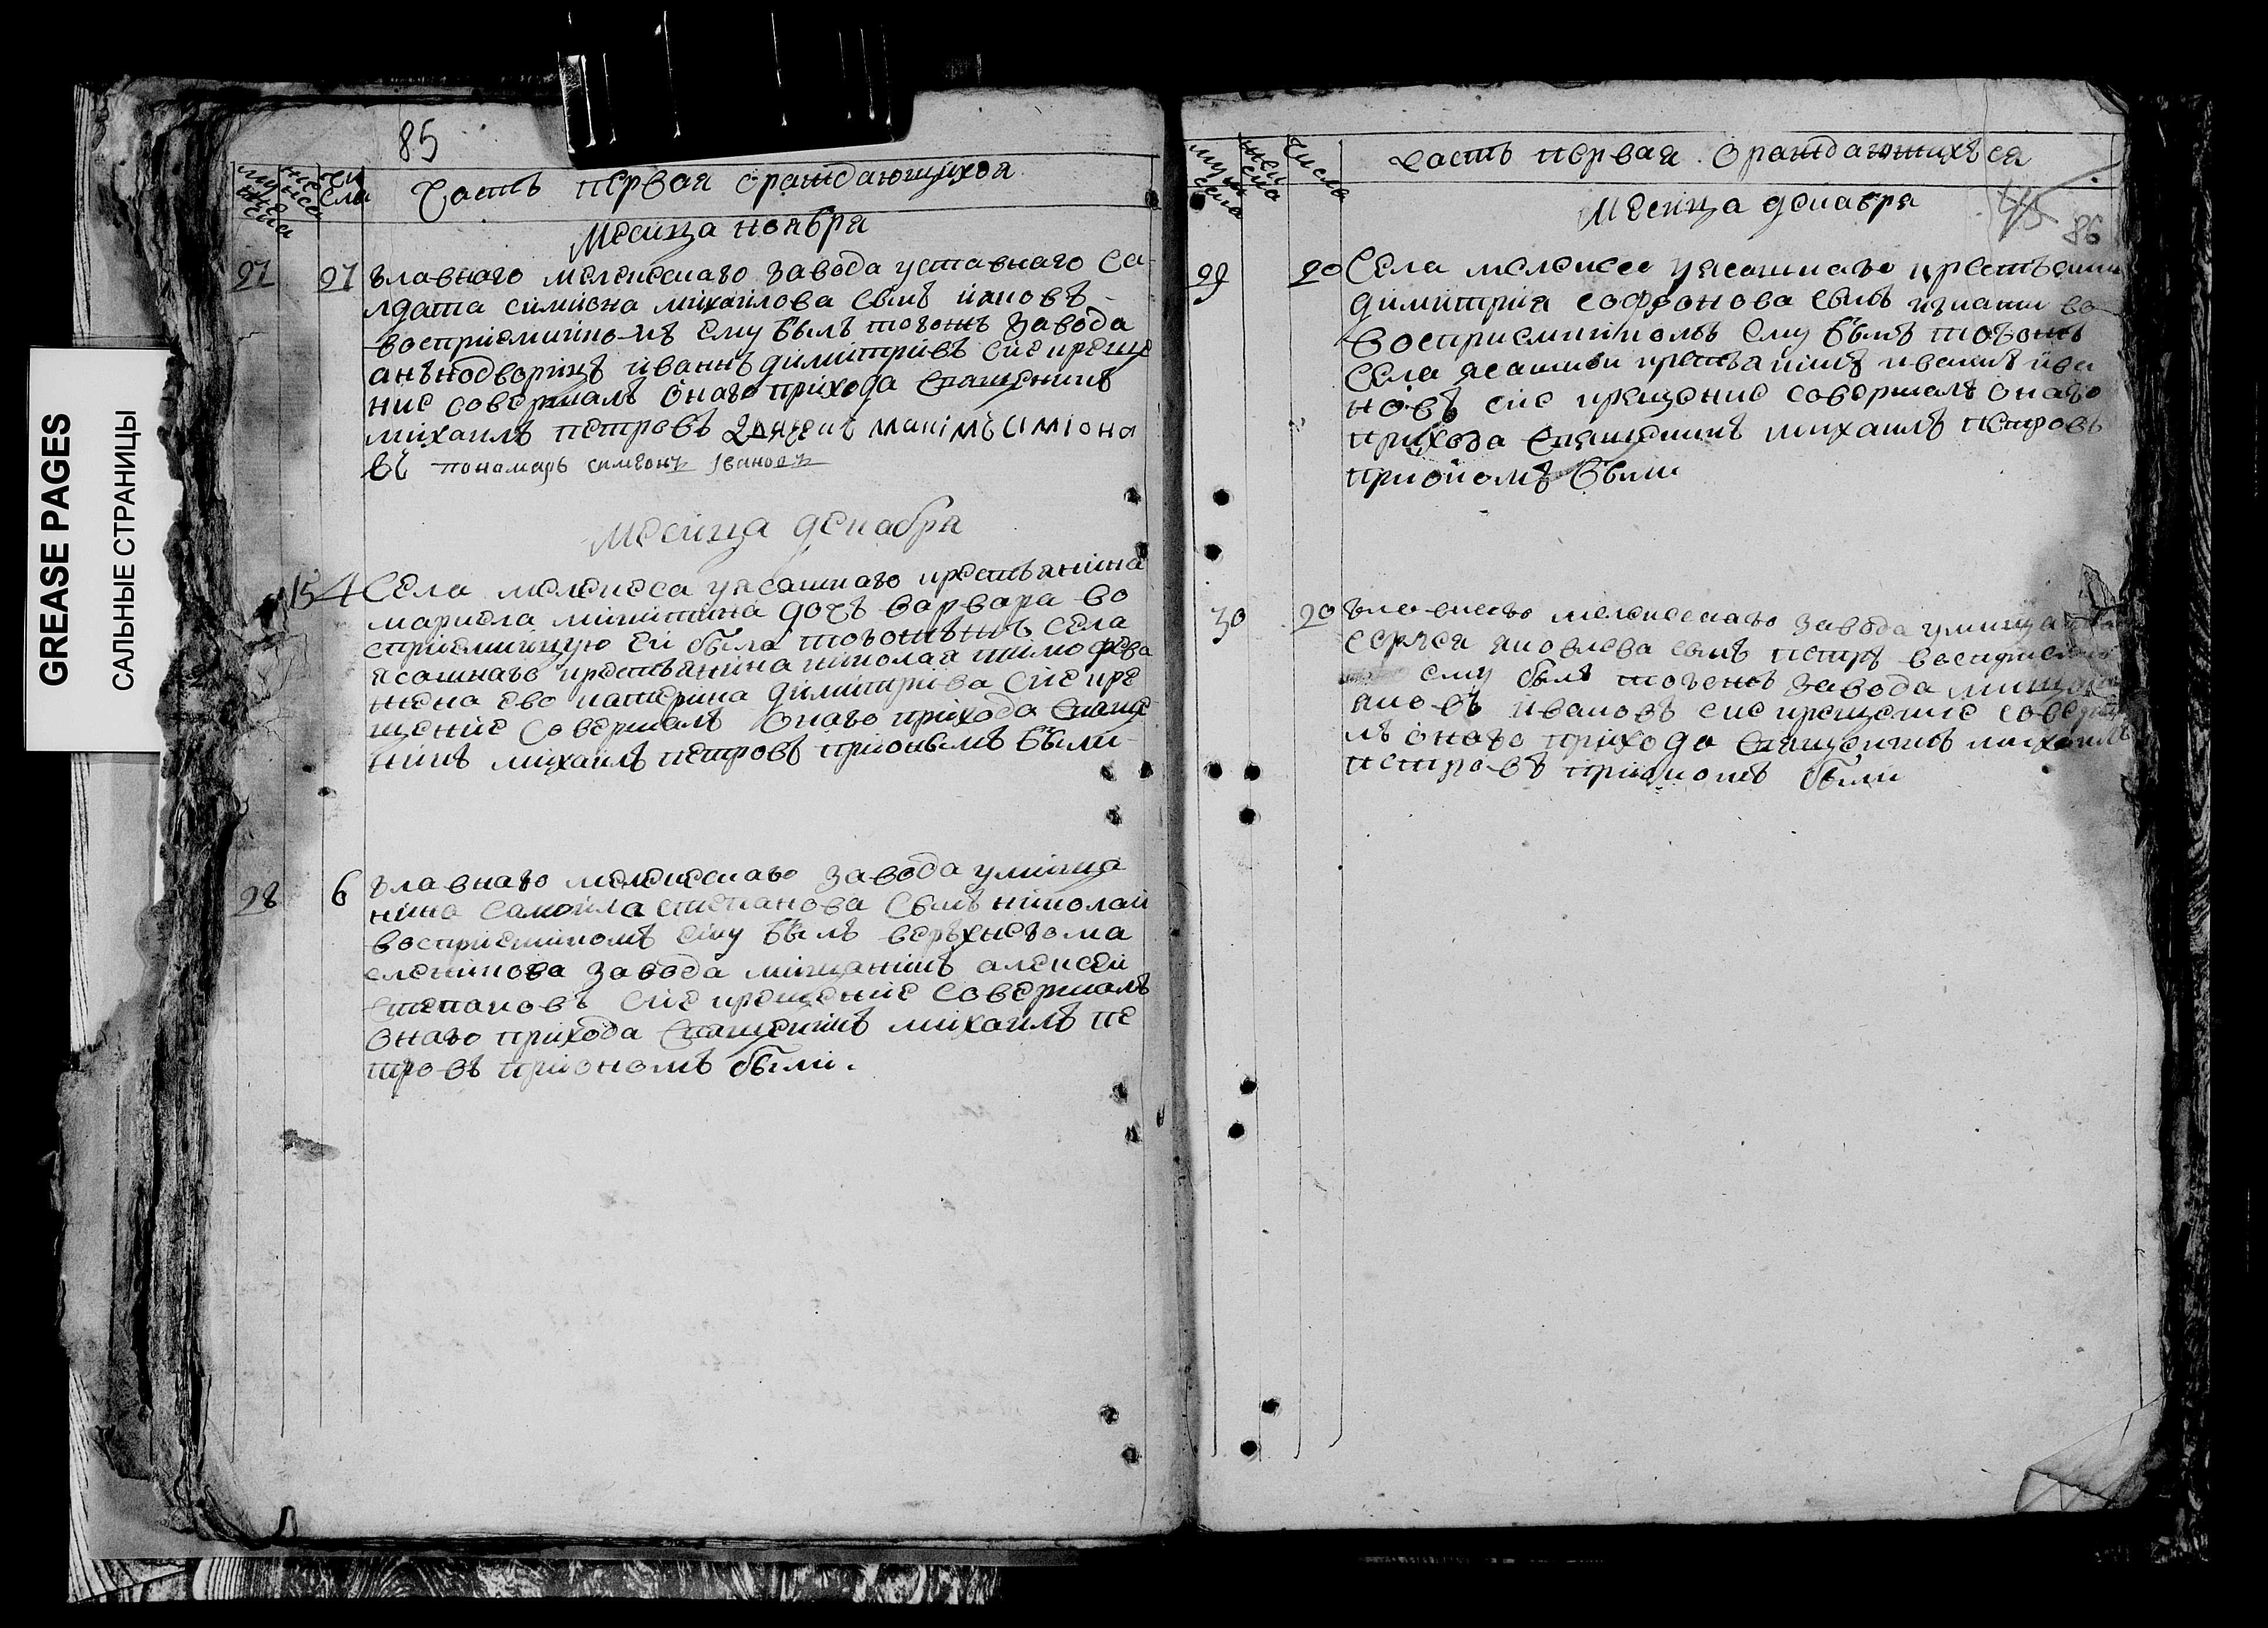 GREASE PAGES
САЛЬНЫЕ СТРАНИЦЫ
85
мужеска
женска
числа
Часть первая ораждающихся
Месяца ноября
27 27 главнаго мелекескаго завода уставнаго са
лдата симиона михаилова сынъ иаковъ
восприемникомъ ему былъ тогожъ завода
иваннъ димитривъ сие креще
ние совершалъ онаго прихода священникъ
михаилъ петровъ дячекъ максимъ симионо
въ пономарь симеонъ Ивановъ
Месяца декабря
15 4 Села мелекеса у ясашнаго крестьянина
никитина дочь варвара во
сприемницою ей была тогожъ села
ясашнаго крестьянина николая тимофеева
жена ево катерина димитрива сие кре
щение совершалъ онаго прихода свяще
никъ михаилъ петровъ приономъ были
28 6 главнаго мелекескаго завода у мища
нина самойла степанова сынъ николай
восприемникомъ ему былъ верхнего ме
завода мищанинъ алексей
степановъ сие крещение совершалъ
онаго прихода священникъ михаилъ пе
тровъ приономъ были.
мужеска
женска
число
часть первая ораждающихъся
Месяца декабря
45
86
29 20 Села мелекесе у ясашнаго крестьянин
димитрия софронова сынъ игнати во
восприемникомъ ему былъ тогожъ
села ясашной крестьянинъ иванъ ива
новъ сие крещение совершалъ онаго
прихода священникъ михаилъ петровъ
приономъ были
30 20 главнаго мелекескаго завода у мища
сергея яковлева сынъ петръ восприемни
ему былъ тогожъ завода мищан
яковъ ивановъ сие крещение соверша
лъ онаго прихода священникъ михаилъ
петровъ приономъ были